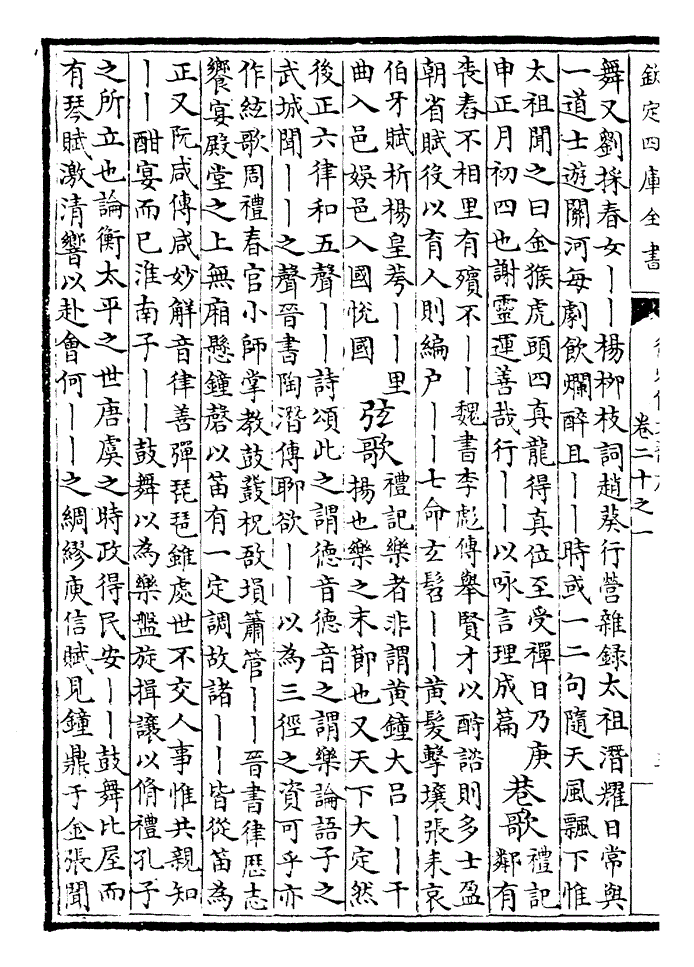 欽定四庫全書
卷二十之一
舞又劉採春女丨丨楊柳枝詞趙葵行營雜錄太祖潛耀日常與
一道士遊關河每劇飲爛醉且丨丨時或一二句隨天風飄下惟
太祖聞之曰金猴虎頭四真龍得真位至受禪日乃庚
申正月初四也謝靈運善哉行丨丨以咏言理成篇
巷歌
禮記
鄰有
喪舂不相里有殯不丨丨魏書李彪傳舉賢才以酧諮則多士盈
朝省賦役以育人則編户丨丨七命玄髫丨丨黄髮擊壤張耒哀
伯牙賦析楊皇荂丨丨里
曲入邑娛邑入國悅國
弦歌
禮記樂者非謂黄鐘大吕丨丨干
揚也樂之末節也又天下大定然
後正六律和五聲丨丨詩頌此之謂德音德音之謂樂論語子之
武城聞丨丨之聲晉書陶潛傳聊欲丨丨以為三徑之資可乎亦
作絃歌周禮春官小師掌教鼓鼗柷敔塤簫管丨丨晉書律歷志
饗宴殿堂之上無廂懸鐘磬以笛有一定調故諸丨丨皆從笛為
正又阮咸傳咸妙解音律善彈琵琶雖處世不交人事惟共親知
丨丨酣宴而已淮南子丨丨鼓舞以為樂盤旋揖讓以脩禮孔子
之所立也論衡太平之世唐虞之時政得民安丨丨鼓舞比屋而
有琴賦激清響以赴會何丨丨之綢繆庾信賦見鐘鼎于金張聞